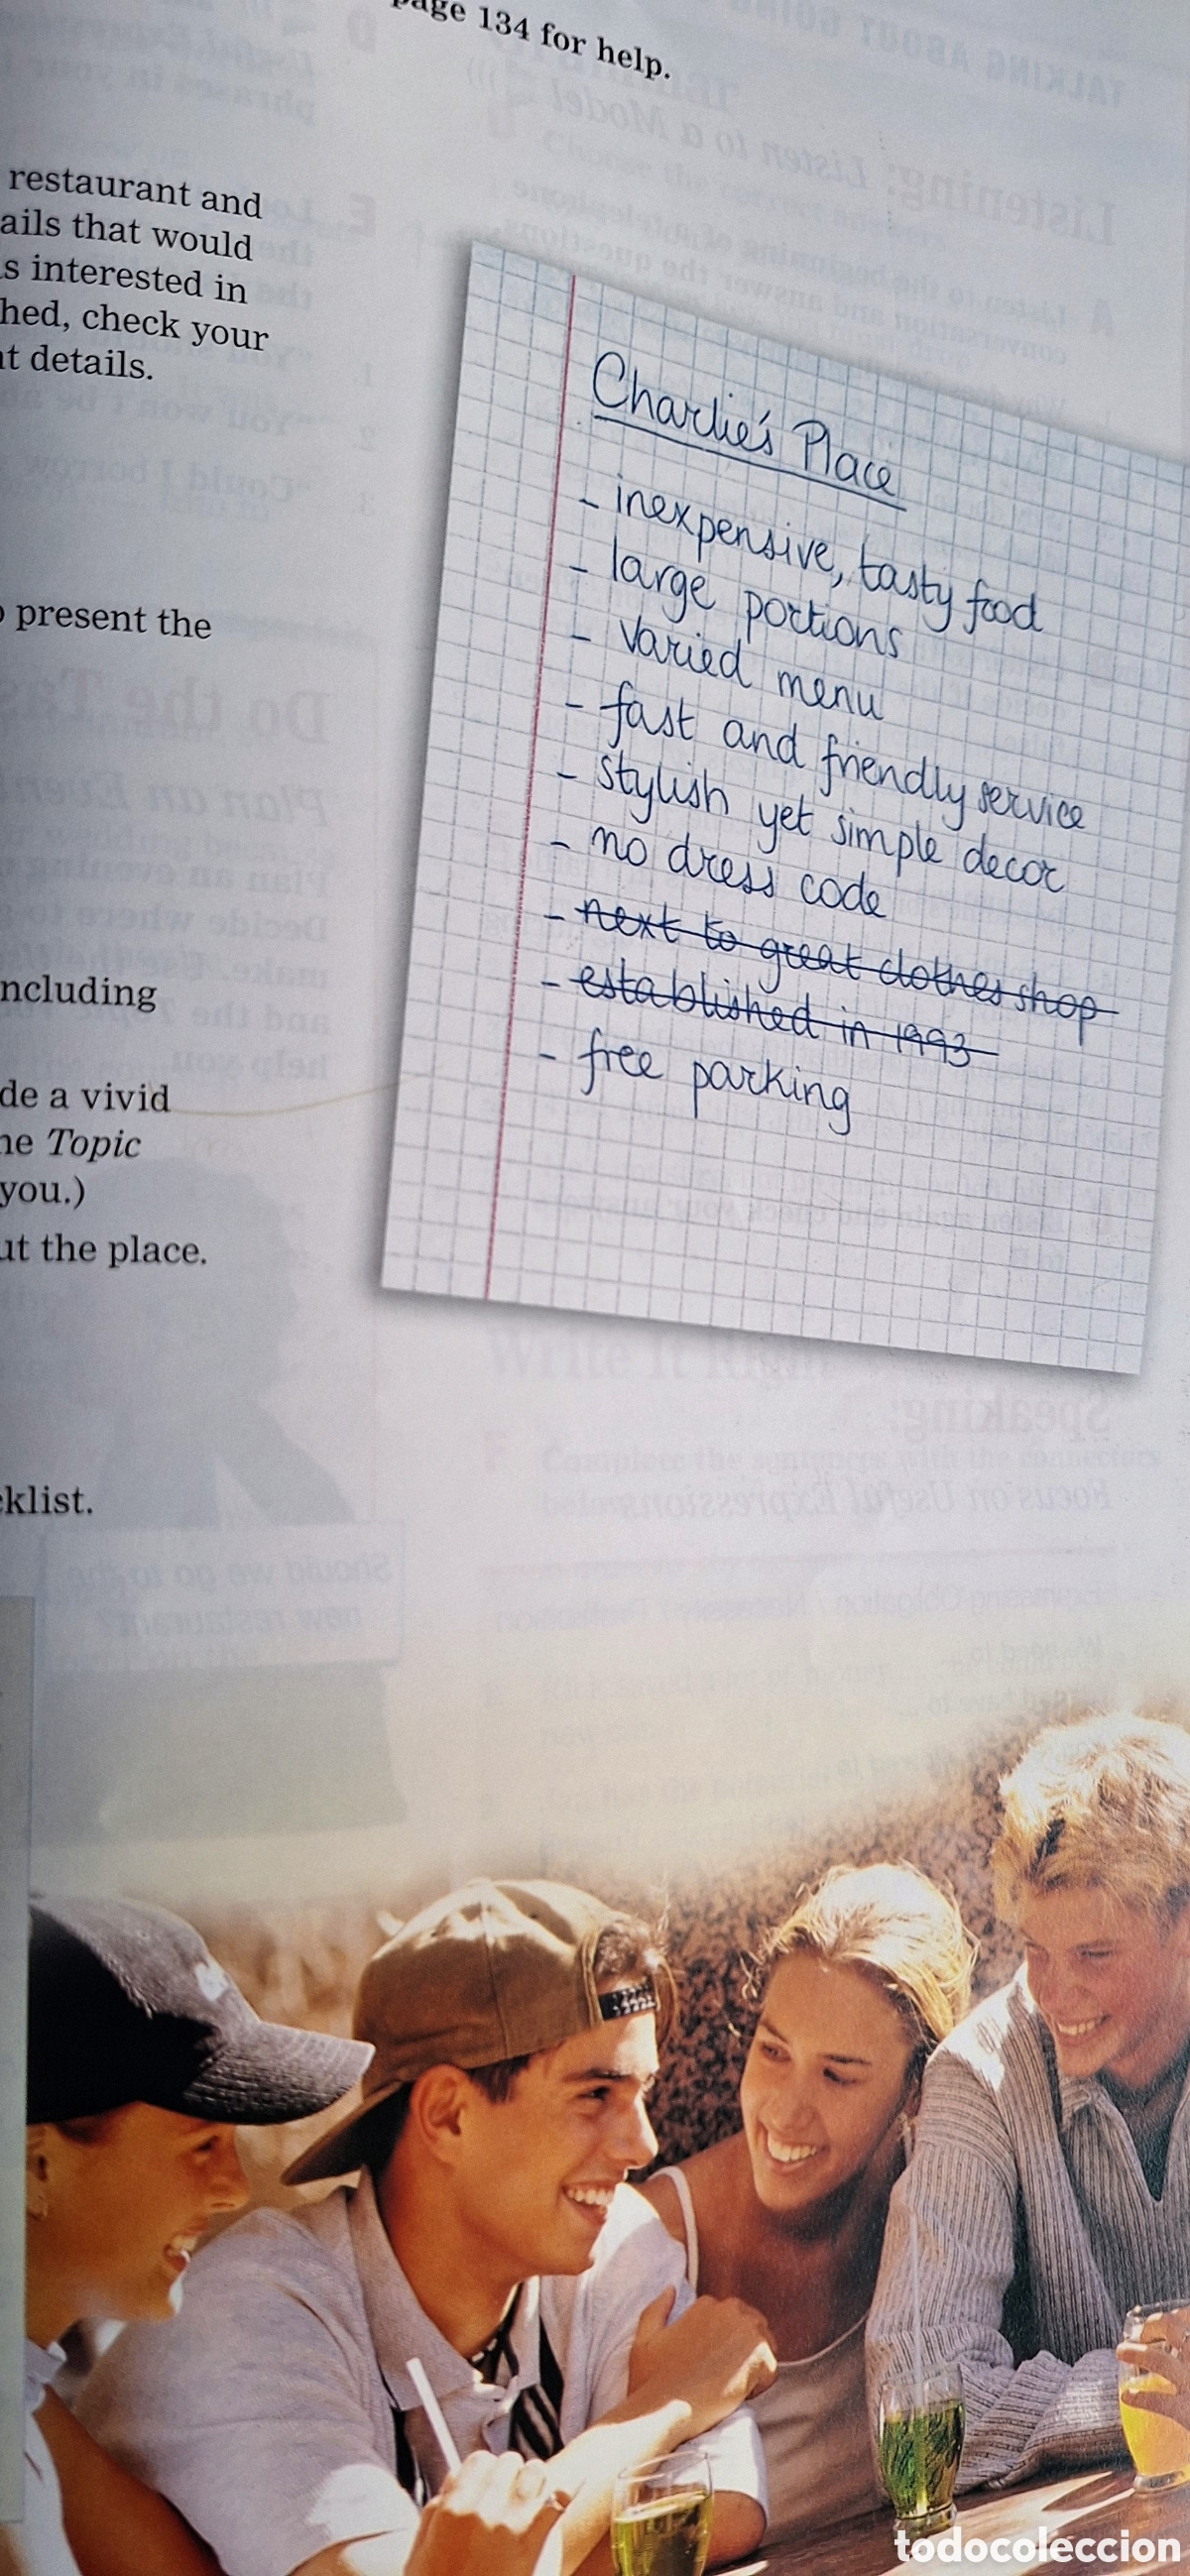 page 134 for help.
restaurant and
ails that would
s interested in
hed, check your
nt details.
present the
ncluding
de a vivid
he Topic
you.)
ut the place.
cklist.
Charlie's Place
- inexpensive, tasty food
- large portions
- varied menu
- fast and friendly service
- stylish yet simple decor
- no dress code
- next to great clothes shop
- established in 1993
- free parking
todocoleccion